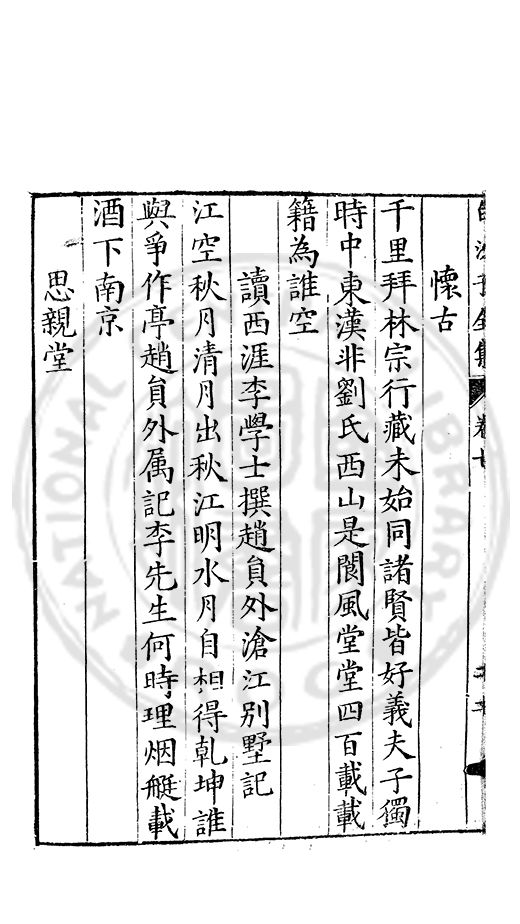 懷古
千里拜林宗行藏未始同諸賢皆好義夫子獨
時中東漢非劉氏西山是閬風堂堂四百載載
籍為誰空
讀西涯李學士撰趙員外滄江別墅記
江空秋月清月出秋江明水月自相得乾坤誰
與爭作亭趙員外属記李先生何時理烟艇載
酒下南京
思親堂
NATIONAL LIBRARY